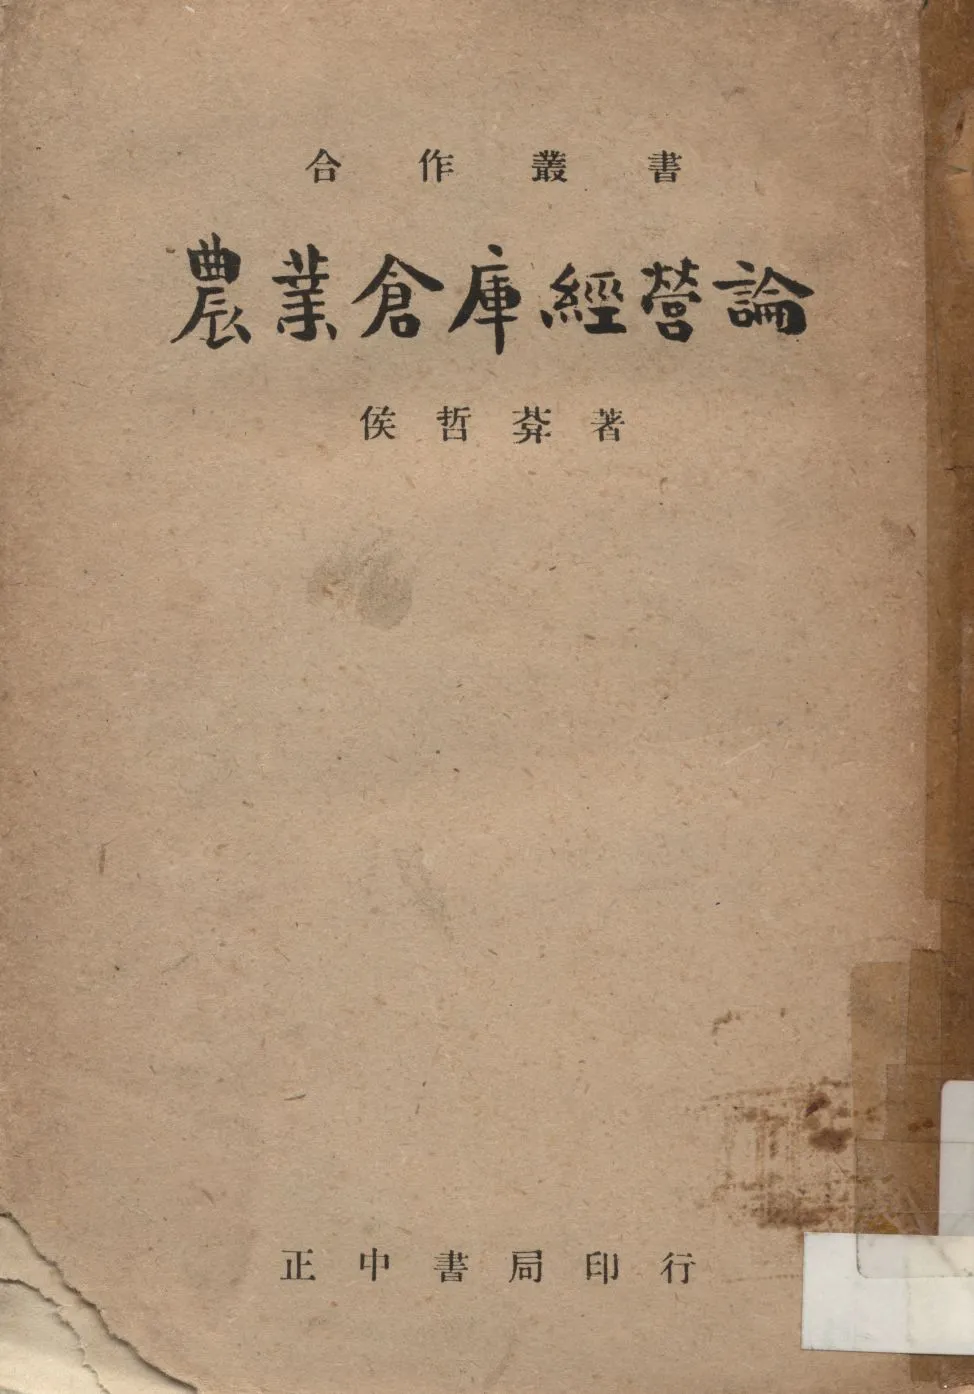 合作叢書
農業倉庫經營論
侯哲葊著
正中書局印行